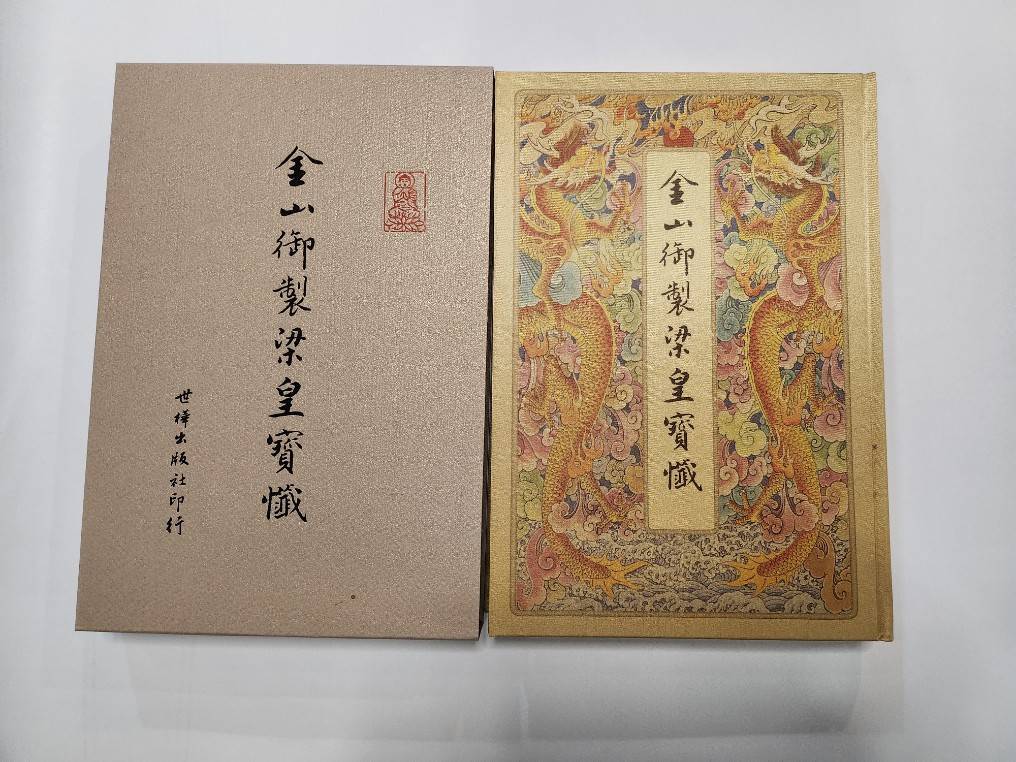 金山御製梁皇寶懺
世樺出版社印行
金山御製梁皇寶懺